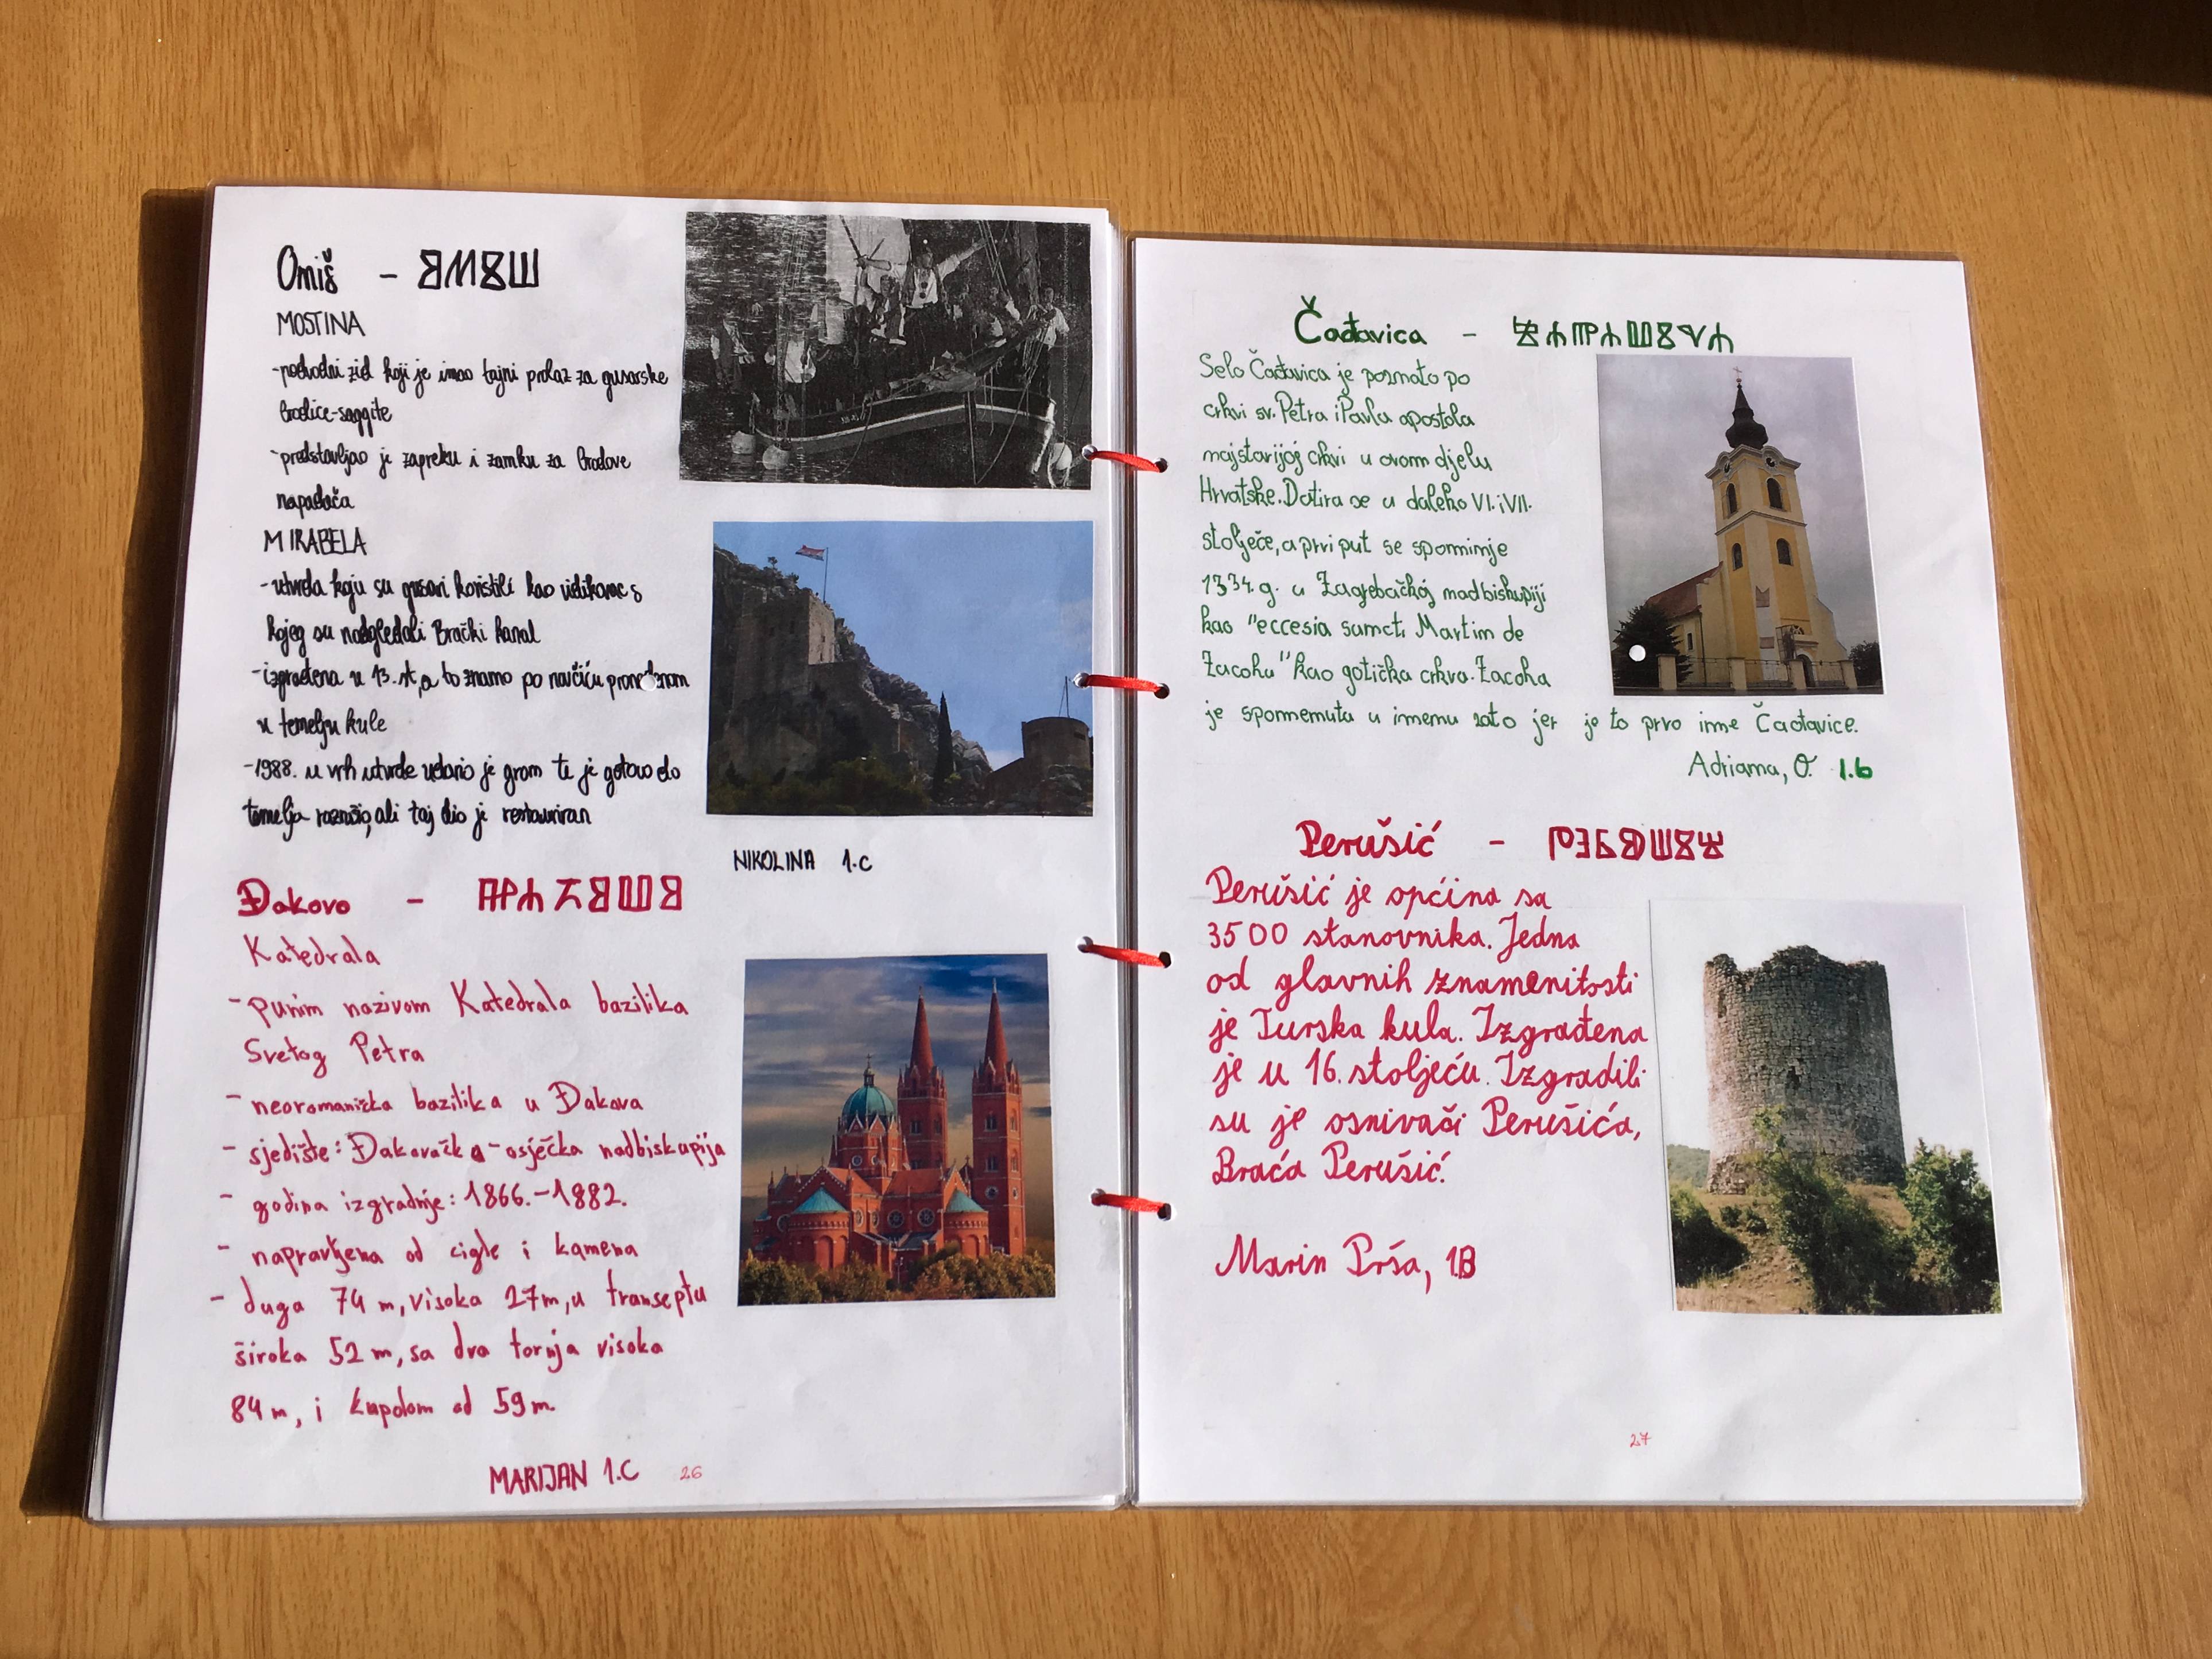 Omiš - ⰑⰏⰉⰞ
MOSTINA
-podvodni zid koji je imao tajni prolaz za gusarske
brodice-saggite
-predstavljao je zapreku i zamku za brodove
napadača
MIRABELA
-utvrda koju su gusari koristili kao vidikovac s
kojeg su nadgledali Brački kanal
-izgrađena u 13. st, a to znamo po novčiću pronađenom
u temelju kule
-1988. u vrh utvrde udario je grom te je gotovo do
temelja raznio, ali taj dio je restauriran
NIKOLINA 1.C
Đakovo -
Katedrala
-punim nazivom Katedrala bazilika
Svetog Petra
- neoromanička bazilika u Đakova
- sjedište: Đakovačka-osječka nadbiskupija
- godina izgradnje: 1866.-1882.
- napravljena od cigle i kamena
- duga 74 m, visoka 27m, u transeptu
široka 52 m, sa dva tornja visoka
84 m, i kupolom od 59m.
MARIJAN 1.C 26
Čađavica -
Selo Čađavica je poznato po
crkvi sv. Petra i Pavla apostola
najstarijoj crkvi u ovom djelu
Hrvatske. Datira se u daleko VI. i VII.
stoljeće, a prvi put se spominje
1334. g. u Zagrebačkoj nadbiskupiji
kao "eccesia sancti Martin de
Zacoha" kao gotička crkva. Zacoha
je spomenuta u imenu zato jer je to prvo ime Čađavice.
Adriana, O. 1.b
Perušić -
Perušić je općina sa
3500 stanovnika. Jedna
od glavnih znamenitosti
je Turska kula. Izgrađena
je u 16. stoljeću. Izgradili
su je osnivači Perušića,
Braća Perušić.
Marin Prša, 1B
27